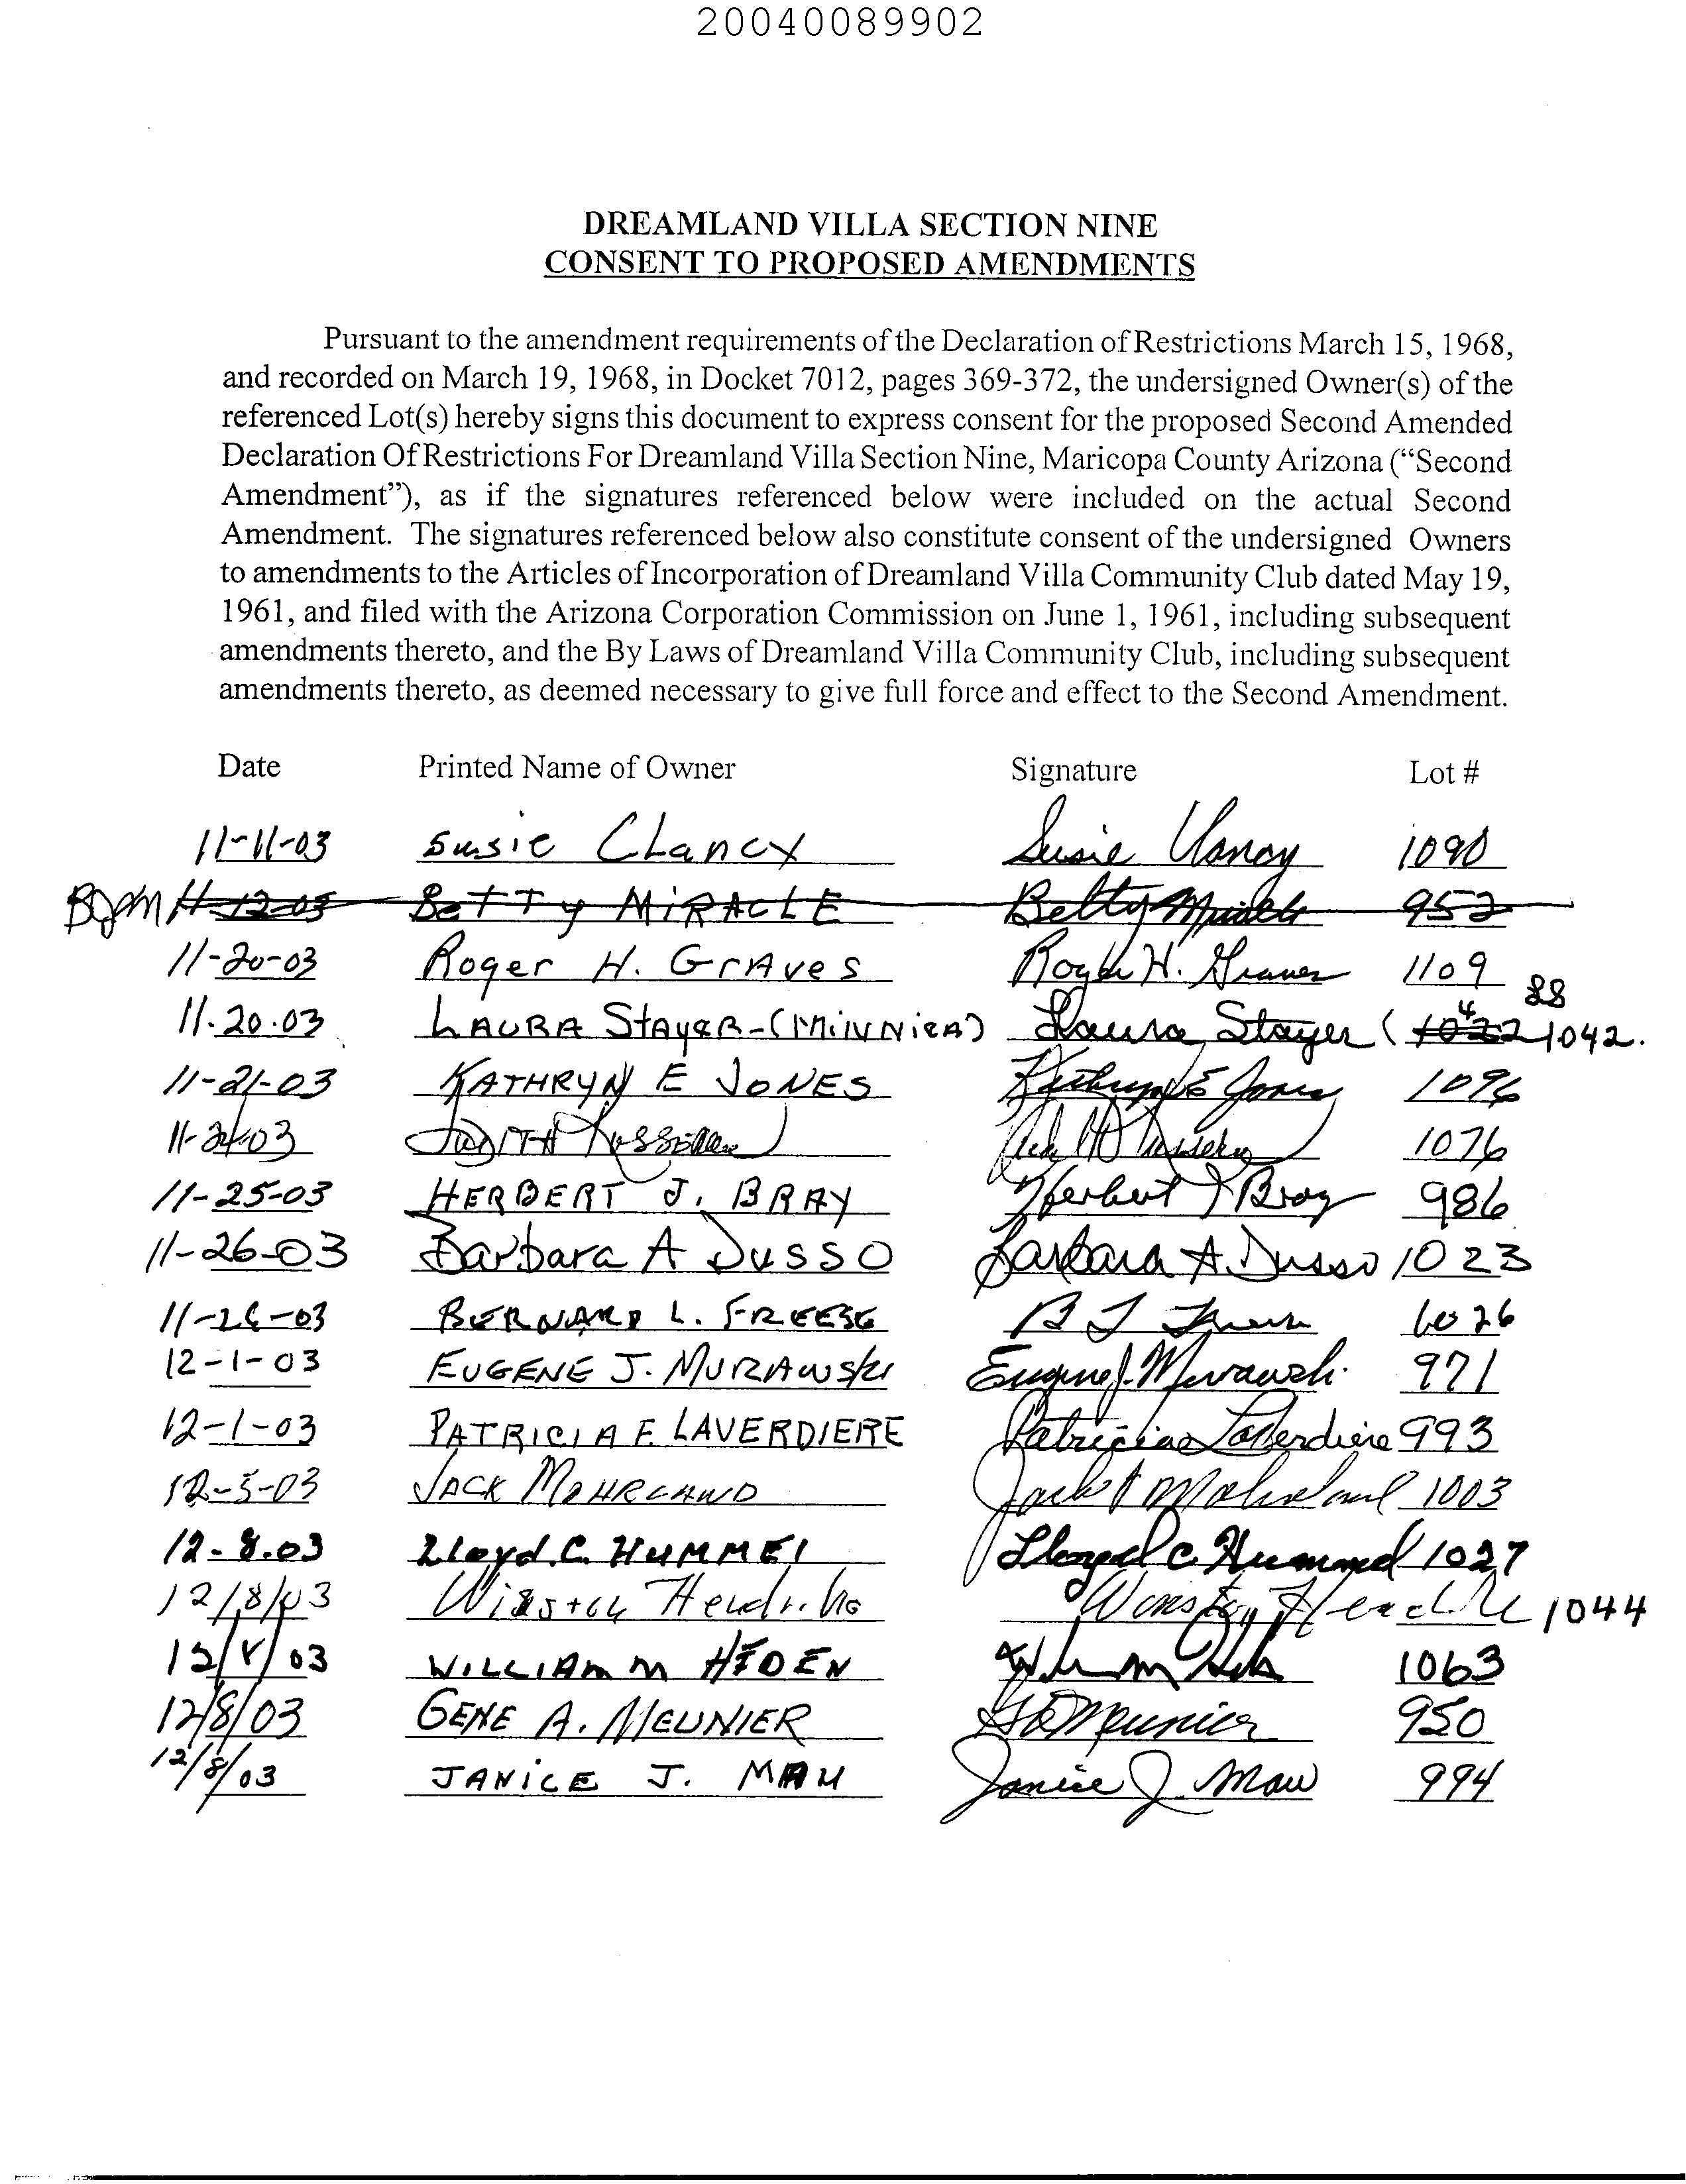 20040089902
DREAMLAND VILLA SECTION NINE
CONSENT TO PROPOSED AMENDMENTS
Pursuant to the amendment requirements of the Declaration of Restrictions March 15, 1968,
and recorded on March 19, 1968, in Docket 7012, pages 369-372, the undersigned Owner(s) of the
referenced Lot(s) hereby signs this document to express consent for the proposed Second Amended
Declaration Of Restrictions For Dreamland Villa Section Nine, Maricopa County Arizona (“Second
Amendment”), as if the signatures referenced below were included on the actual Second
Amendment. The signatures referenced below also constitute consent of the undersigned Owners
to amendments to the Articles of Incorporation of Dreamland Villa Community Club dated May 19,
1961, and filed with the Arizona Corporation Commission on June 1, 1961, including subsequent
amendments thereto, and the By Laws of Dreamland Villa Community Club, including subsequent
amendments thereto, as deemed necessary to give full force and effect to the Second Amendment.
Date Printed Name of Owner Signature Lot #
11-11-03 Susie Clancy Susie Clancy 1090
11-12-03 Betty MiRACLE Betty Miracle 952
11-20-03 Roger H. Graves Roger H. Graves 1109
11.20.03 LAURA Stayer-(MiNNiER) Laura Stayer ( 1042.
11-21-03 KATHRYN E JONES Kathryn E Jones 1096
11-24-03 JUDITH 1076
11-25-03 HERBERT J. BRAY Herbert J Bray 986
11-26-03 Barbara A Dusso Barbara A. Dusso 1023
11-26-03 BERNARD L. FREESE B L Freese 1026
12-1-03 EUGENE J. MURAWSki Eugene J. Murawski 971
12-1-03 PATRICIA F. LAVERDIERE Patricia Laverdiere 993
12-5-03 JACK Jack 1003
12-8.03 Lloyd.C. HUMMEl Lloyd C Hummel 1027
12/8/03 Winston 1044
12/8/03 WILLIAM M HIDEN 1063
12/8/03 GENE A. MEUNIER GA Meunier 950
12/8/03 JANiCE J. MAU Janice J. Mau 994